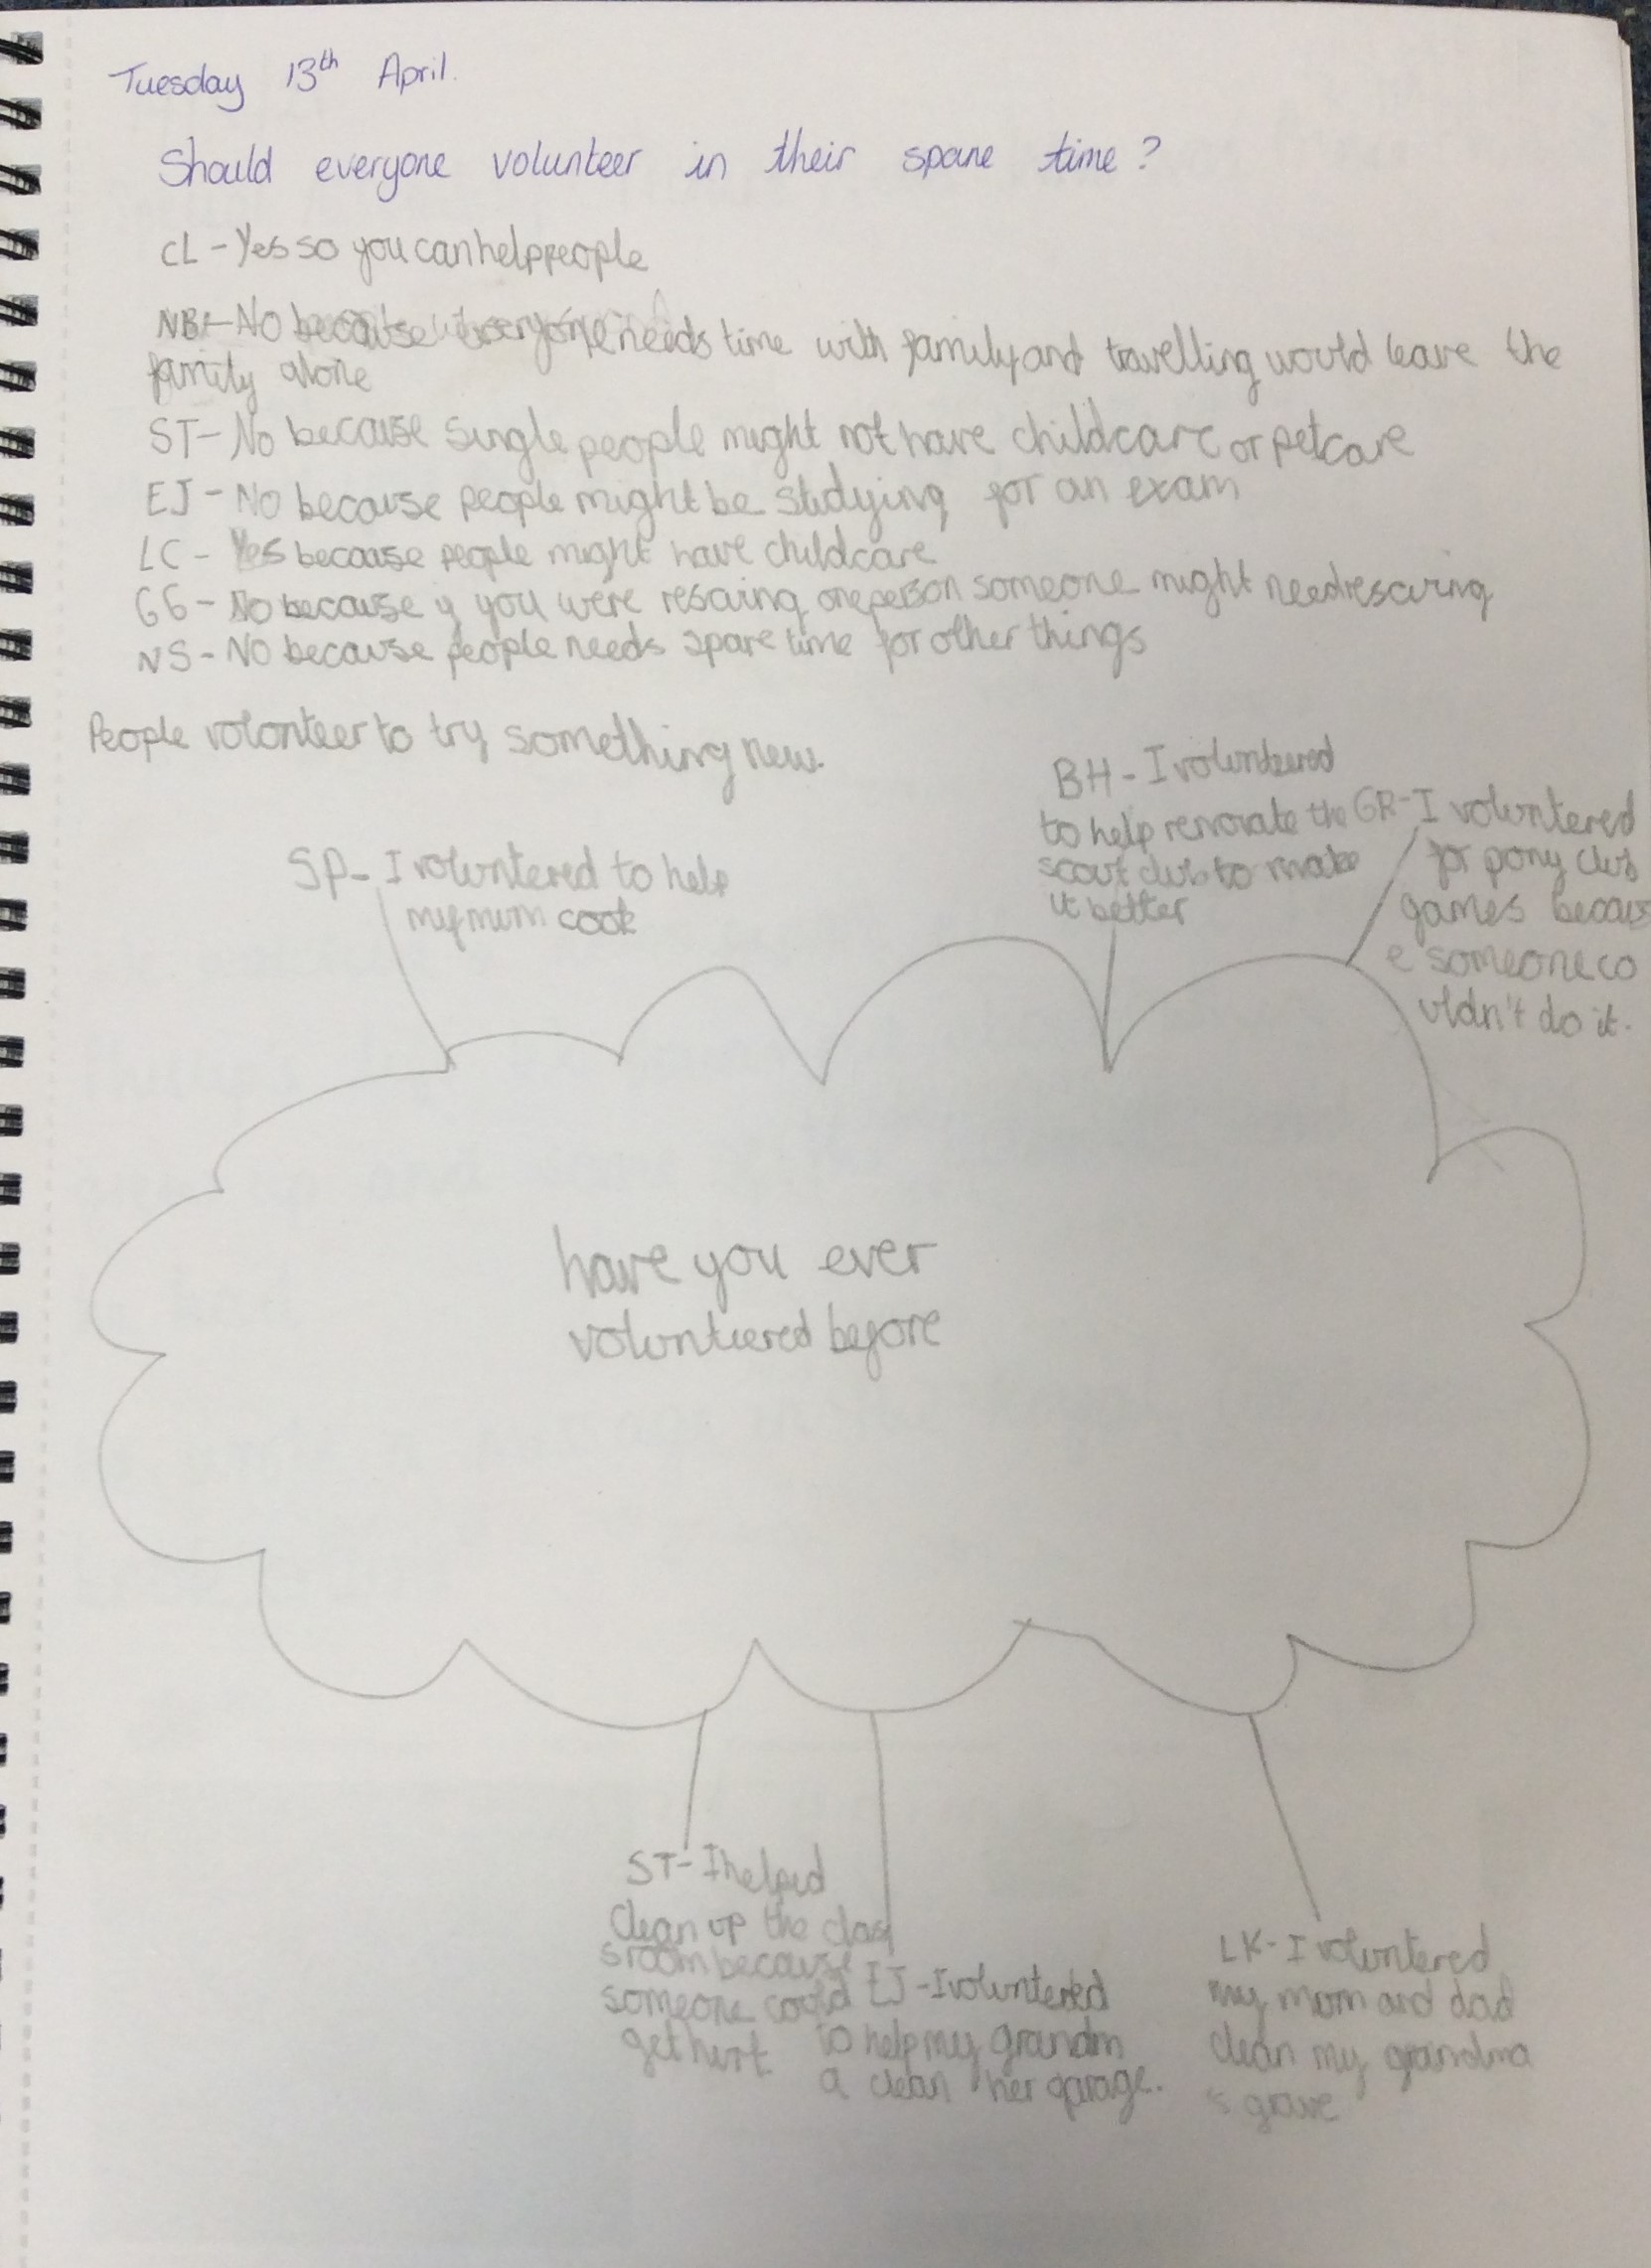 Tuesday 13th April.
Should everyone volunteer in their spare time?
CL - Yes so you can help people
NB - No because everyone needs time with family and travelling would leave the
family alone
ST - No because single people might not have childcare or petcare
EJ - No because people might be studying for an exam
LC - Yes because people might have childcare
GG - No because if you were rescuing one person someone might need rescuing
NS - No because people needs spare time for other things
People volonteer to try something new.
SP - I volontered to help
my mum cook
BH - I volontered
to help renovate the
scout club to make
it better
GR - I volontered
for pony club
games becaus
e someone co
uldn't do it.
have you ever
volunteered before
ST - I helped
Clean up the clas
sroom because
someone could
get hurt.
EJ - I volontered
to help my grandm
a clean her garage.
LK - I volontered
my mom and dad
clean my grandma
s grave